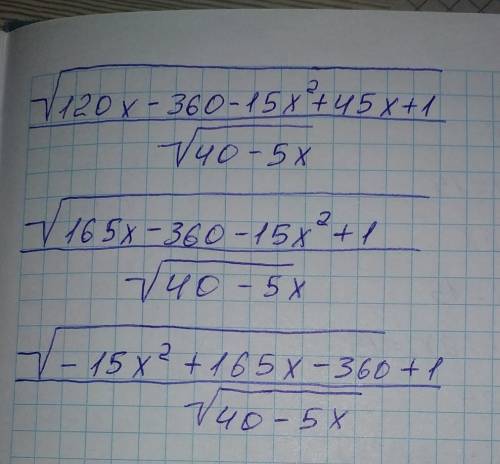 √120x - 360 - 15x² + 45x + 1
√40 - 5x
√165x - 360 - 15x² + 1
√40 - 5x
√-15x² + 165x - 360 + 1
√40 - 5x